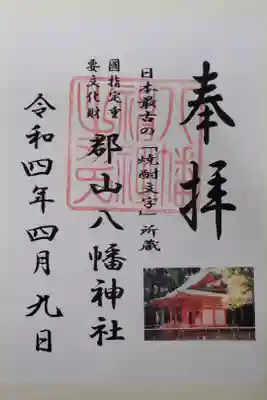 奉拝
日本最古の「焼酎文字」所蔵
郡山八幡神社
國指定重
要文化財
令和四年四月九日